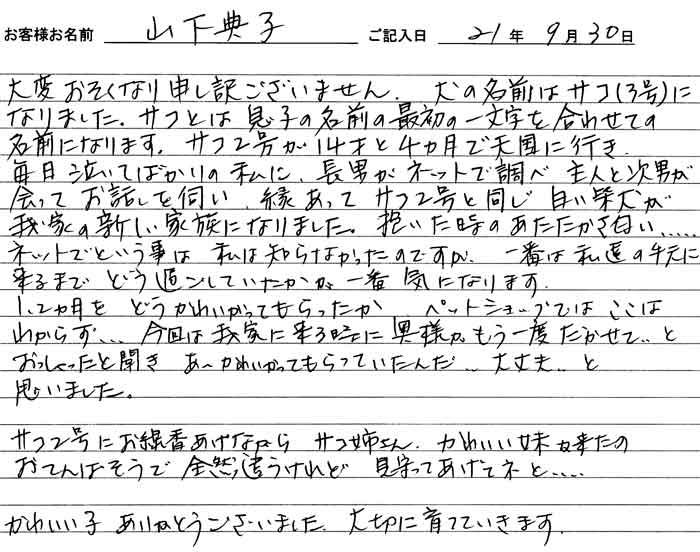 お客様お名前 山下典子 ご記入日 21年 9月30日
大変おそくなり申し訳ございません. 犬の名前はサフ(3号)に
なりました。サフとは息子の名前の最初の一文字を合わせての
名前になります。サフ2号が14才と4カ月で天国に行き
毎日泣いてばかりの私に、長男がネットで調べ主人と次男が
会ってお話しを伺い、縁あってサフ2号と同じ白い柴犬が
我家の新しい家族になりました。抱いた時のあたたかさ匂い.....
ネットでという事は私は知らなかったのですが、一番は私達の手元に
来るまでどう過ごしていたかが一番気になります.
1、2カ月をどうかわいがってもらったか ペットショップではここは
わからず... 今回は我家に来る時に奥様がもう一度だかせて..と
おっしゃったと聞き あ〜かわいがってもらっていたんだ.. 大丈夫..と
思いました。
サフ2号にお線香あげながら サフ姉さん、かわいい妹が来たの
おてんばそうで全然違うけれど 見守ってあげてネと....
かわいい子ありがとうございました. 大切に育てていきます.